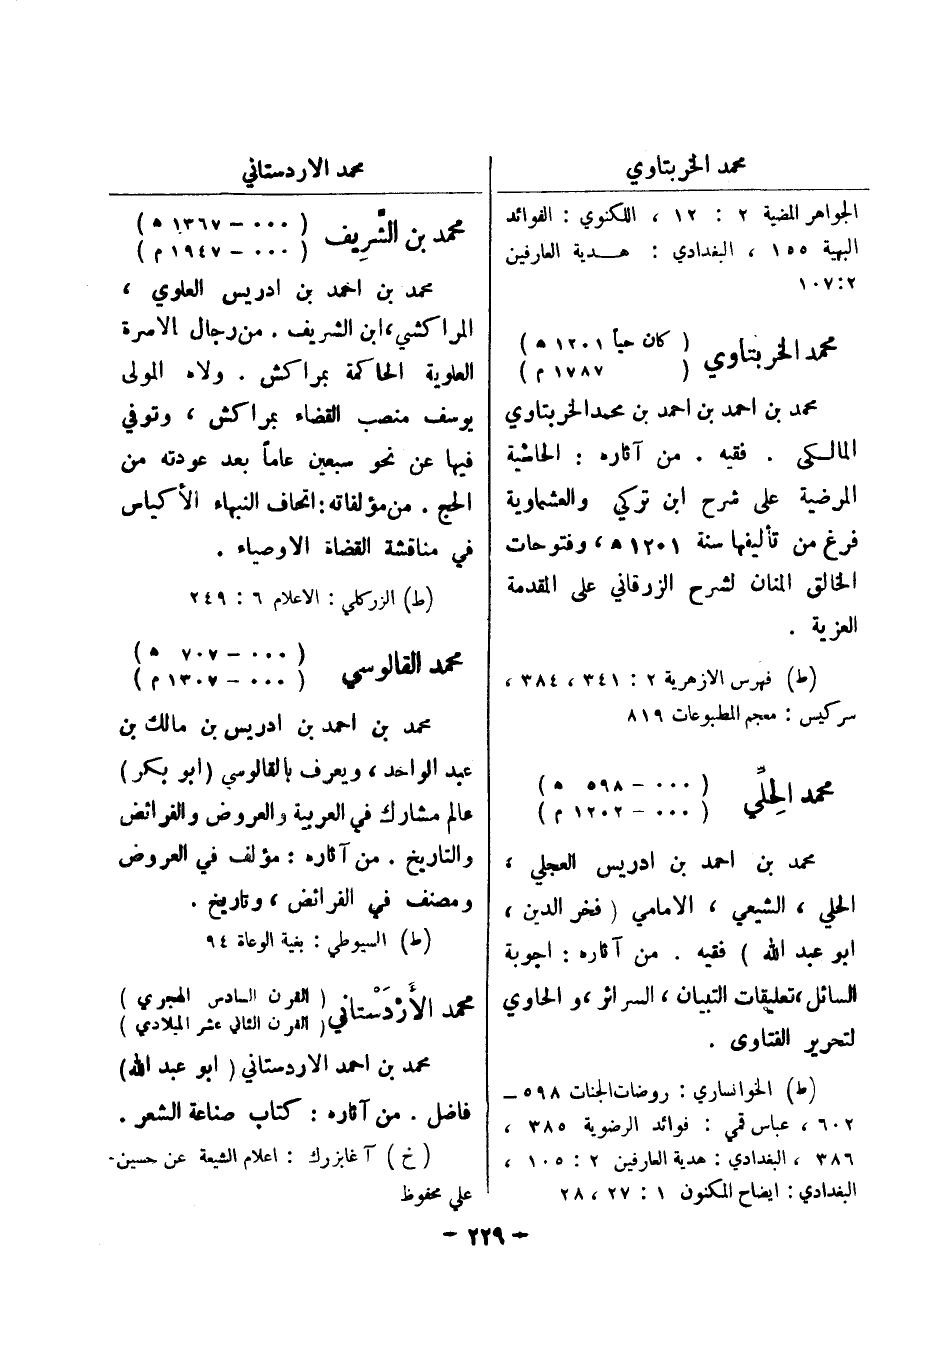 محمد الخربتاوي
الجواهر المضية ٢ : ١٢ ، اللكنوي : الفوائد
البهية ١٥٥ ، البغدادي : هـدية العارفين
٢:١٠٧
محمد الخربتاوي ( كان حياً ١٢٠١ ه )
( ١٧٨٧ م )
محمد بن احمد بن احمد بن محمد الخربتاوي
المالكي . فقيه . من آثاره : الحاشية
المرضية على شرح ابن تركي والعشماوية
فرغ من تأليفها سنة ١٢٠١ ه ، وفتوحات
الخالق المنان لشرح الزرقاني على المقدمة
العزية .
(ط) فهرس الازهرية ٢ : ٣٤١ ، ٣٨٤ ،
سركيس : معجم المطبوعات ٨١٩
محمد الحِلِّي ( ٠٠٠ – ٥٩٨ ه )
( ٠٠٠ – ١٢٠٢ م )
محمد بن احمد بن ادريس العجلي ،
الحلي ، الشيعي ، الامامي ( فخر الدين ،
ابو عبد الله ) فقيه . من آثاره : اجوبة
السائل ، تعليقات التبيان ، السرائر ، و الحاوي
لتحرير الفتاوى .
(ط) الخوانساري : روضات الجنات ٥٩٨ –
٦٠٢ ، عباس قمي : فوائد الرضوية ٣٨٥ ،
٣٨٦ ، البغدادي : هدية العارفين ٢ : ١٠٥ ،
البغدادي : ايضاح المكنون ١ : ٢٧ ، ٢٨
محمد الاردستاني
محمد بن الشَّرِيف ( ٠٠٠ – ١٣٦٧ ه )
( ٠٠٠ – ١٩٤٧ م )
محمد بن احمد بن ادريس العلوي ،
المراكشي ، ابن الشريف . من رجال الاسرة
العلوية الحاكمة بمراكش . ولاه المولى
يوسف منصب القضاء بمراكش ، وتوفي
فيها عن نحو سبعين عاماً بعد عودته من
الحج . من مؤلفاته : اتحاف النبهاء الأكياس
في مناقشة القضاة الاوصياء .
(ط) الزركلي : الاعلام ٦ : ٢٤٩
محمد القالوسي ( ٠٠٠ – ٧٠٧ ه )
( ٠٠٠ – ١٣٠٧ م )
محمد بن احمد بن ادريس بن مالك بن
عبد الواحد ، ويعرف بالقالوسي (ابو بكر)
عالم مشارك في العربية والعروض والفرائض
والتاريخ . من آثاره : مؤلف في العروض
ومصنف في الفرائض ، وتاريخ .
(ط) السيوطي : بغية الوعاة ٩٤
محمد الأَرْدَسْتاني ( القرن السادس الهجري )
( القرن الثاني عشر الميلادي )
محمد بن احمد الاردستاني ( ابو عبد الله)
فاضل . من آثاره : كتاب صناعة الشعر .
( خ ) آغابزرك : اعلام الشيعة عن حسين-
علي محفوظ
– ٢٢٩ –